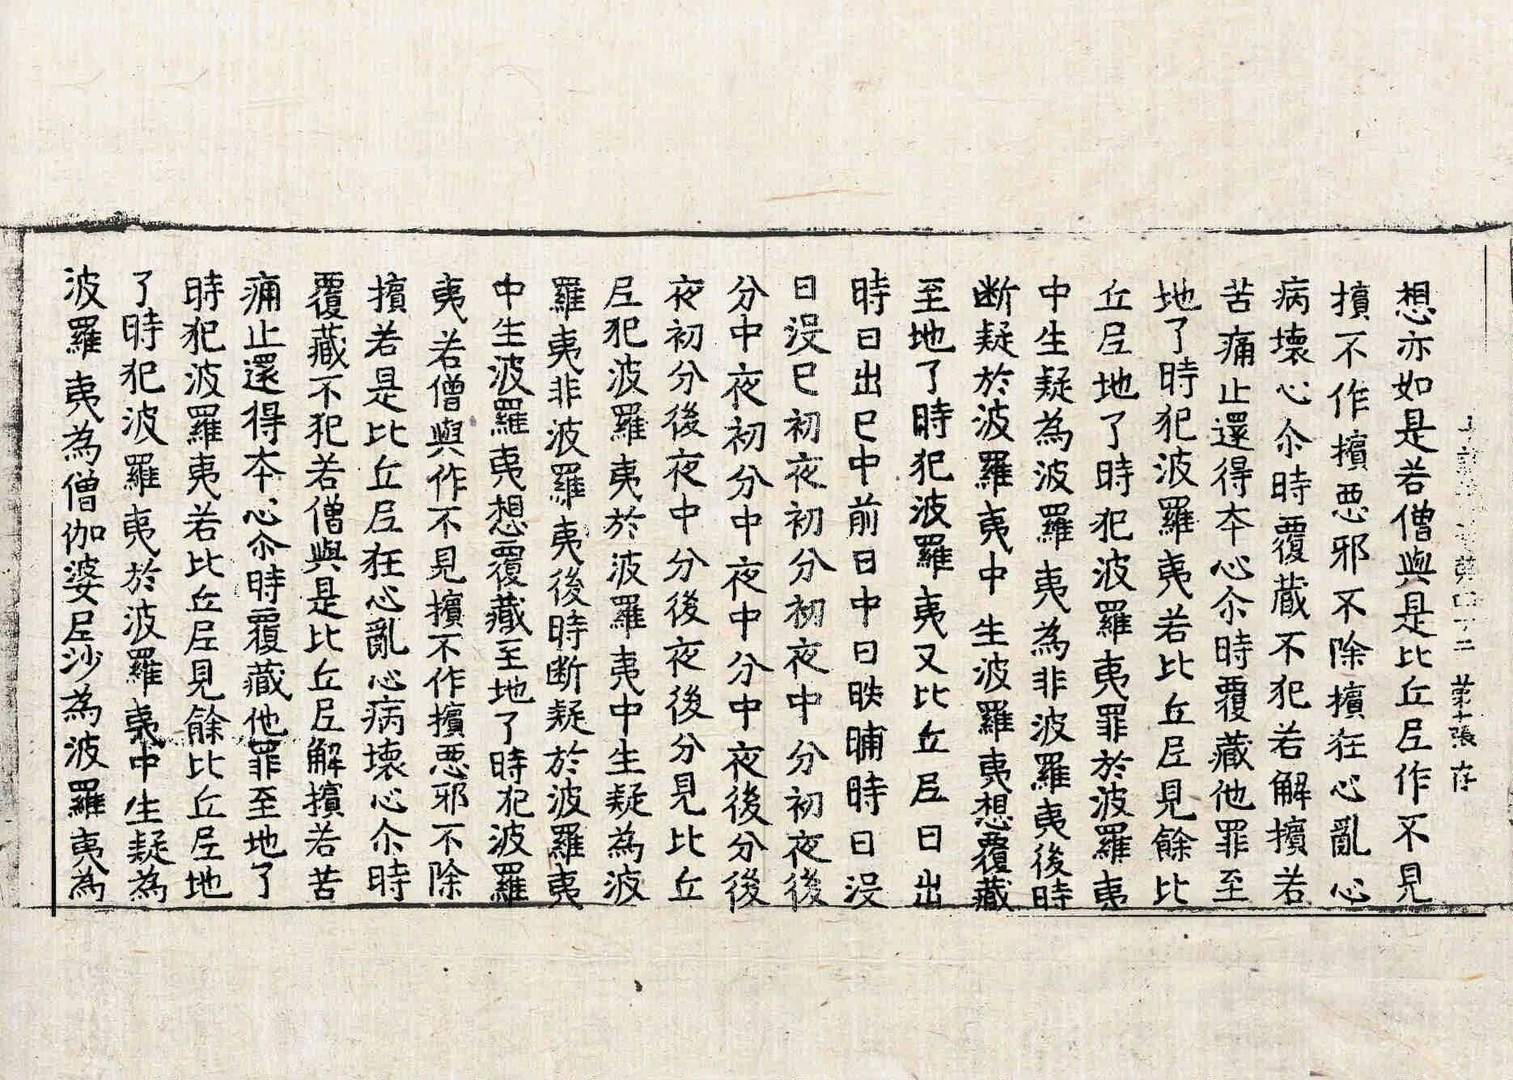 想亦如是若僧與是比丘尼作不見
擯不作擯惡邪不除擯狂心亂心
病壞心尒時覆藏不犯若解擯若
苦痛止還得本心尒時覆藏他罪至
地了時犯波羅夷若比丘尼見餘比
丘尼地了時犯波羅夷罪於波羅夷
中生疑為波羅夷為非波羅夷後時
断疑於波羅夷中生波羅夷想覆藏
至地了時犯波羅夷又比丘尼日出
時日出巳中前日中日昳晡時日没
日没巳初夜初分初夜中分初夜後
分中夜初分中夜中分中夜後分後
夜初分後夜中分後夜後分見比丘
尼犯波羅夷於波羅夷中生疑為波
羅夷非波羅夷後時断疑於波羅夷
中生波羅夷想覆藏至地了時犯波羅
夷若僧與作不見擯不作擯惡邪不除
擯若是比丘尼狂心亂心病壞心尒時
覆藏不犯若僧與是比丘尼解擯若苦
痛止還得本心尒時覆藏他罪至地了
時犯波羅夷若比丘尼見餘比丘尼地
了時犯波羅夷於波羅夷中生疑為
波羅夷為僧伽婆尼沙為波羅夷為
第四十二 第十張 存